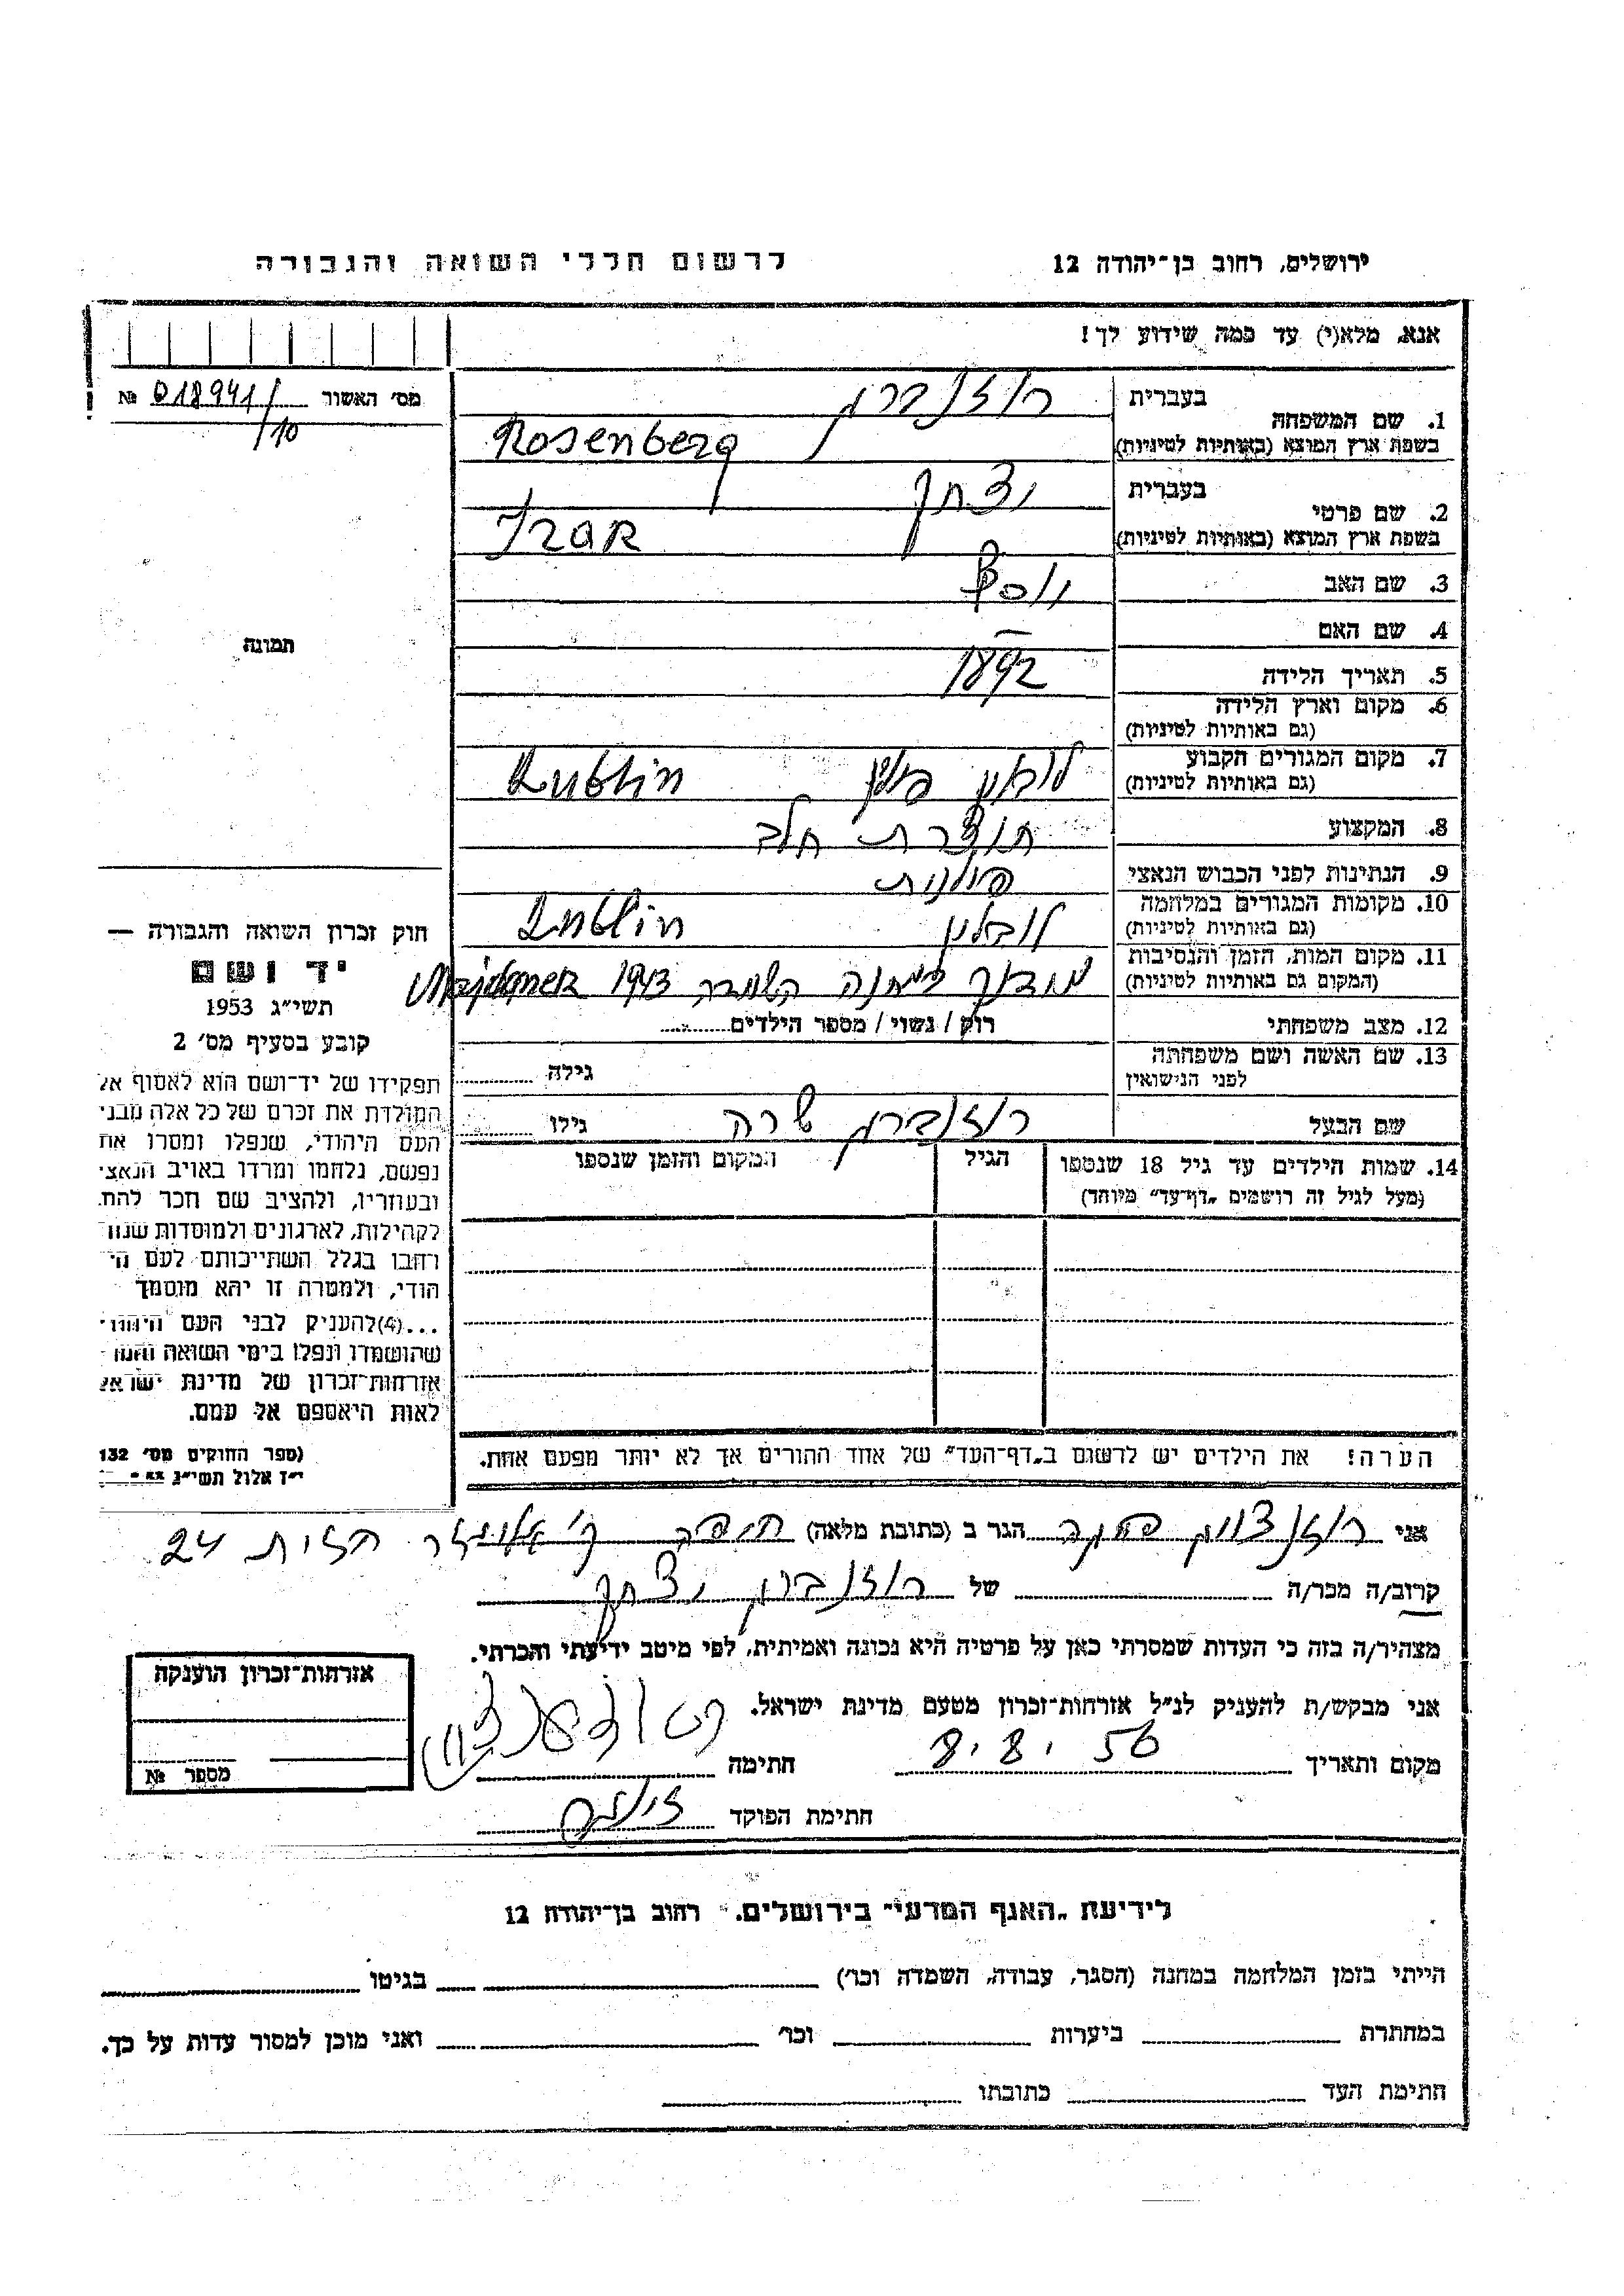 ירושלים, רחוב בן־יהודה 12
לרשום חללי השואה והגבורה
אנא, מלא(י) עד כמה שידוע לך!
מס׳ האשור № 018941/10
1. שם המשפחה
בעברית רוזנברג
בשפת ארץ המוצא (באותיות לטיניות) Rosenberg
2. שם פרטי
בעברית יצחק
בשפת ארץ המוצא (באותיות לטיניות) Izak
3. שם האב יוסף
4. שם האם —
5. תאריך הלידה 1892
6. מקום וארץ הלידה
(גם באותיות לטיניות)
7. מקום המגורים הקבוע לובלין פולין Lublin
(גם באותיות לטיניות)
8. המקצוע תוצרת חלב
9. הנתינות לפני הכבוש הנאצי פולנית
10. מקומות המגורים במלחמה לובלין Lublin
(גם באותיות לטיניות)
11. מקום המות, הזמן והנסיבות
(המקום גם באותיות לטיניות) מידנק מחנה השמדה 1943 Majdanek
12. מצב משפחתי רוק / נשוי / מספר הילדים
13. שם האשה ושם משפחתה
לפני הנישואין גילה
שם הבעל רוזנברג שרה גילו
14. שמות הילדים עד גיל 18 שנספו הגיל המקום והזמן שנספו
(מעל לגיל זה רושמים „דף־עד״ מיוחד)
הערה! את הילדים יש לרשום ב„דף־העד״ של אחד ההורים אך לא יותר מפעם אחת.
תמונה
חוק זכרון השואה והגבורה —
יד ושם
תשי״ג 1953
קובע בסעיף מס׳ 2
תפקידו של יד־ושם הוא לאסוף אל
המולדת את זכרם של כל אלה מבני
העם היהודי, שנפלו ומסרו את
נפשם, נלחמו ומרדו באויב הנאצי
ובעוזריו, ולהציב שם וזכר להם,
לקהילות, לארגונים ולמוסדות שנה
רחבו בגלל השתייכותם לעם הי
הודי, ולמטרה זו יהא מוסמך
...(4)להעניק לבני העם היהודי
שהושמדו ונפלו בימי השואה והמרי
אזרחות־זכרון של מדינת ישראל
לאות היאספם אל עמם.
(ספר החוקים מס׳ 132
י״ז אלול תשי״ג
אני רוזנצוויג הגר ב (כתובת מלאה) חיפה ק׳ אליעזר הזית 24
קרוב/ה מכר/ה של רוזנברג יצחק
מצהיר/ה בזה כי העדות שמסרתי כאן על פרטיה היא נכונה ואמיתית, לפי מיטב ידיעתי והכרתי.
אני מבקש/ת להעניק לנ״ל אזרחות־זכרון מטעם מדינת ישראל.
מקום ותאריך 8.8.56 חתימה
חתימת הפוקד
אזרחות־זכרון הוענקה
מספר №
לידיעת „האגף המדעי״ בירושלים, רחוב בן־יהודה 12
הייתי בזמן המלחמה במחנה (הסגר, עבודה, השמדה וכו׳) בגיטו
במחתרת ביערות וכו׳ ואני מוכן למסור עדות על כך.
חתימת העד כתובתו